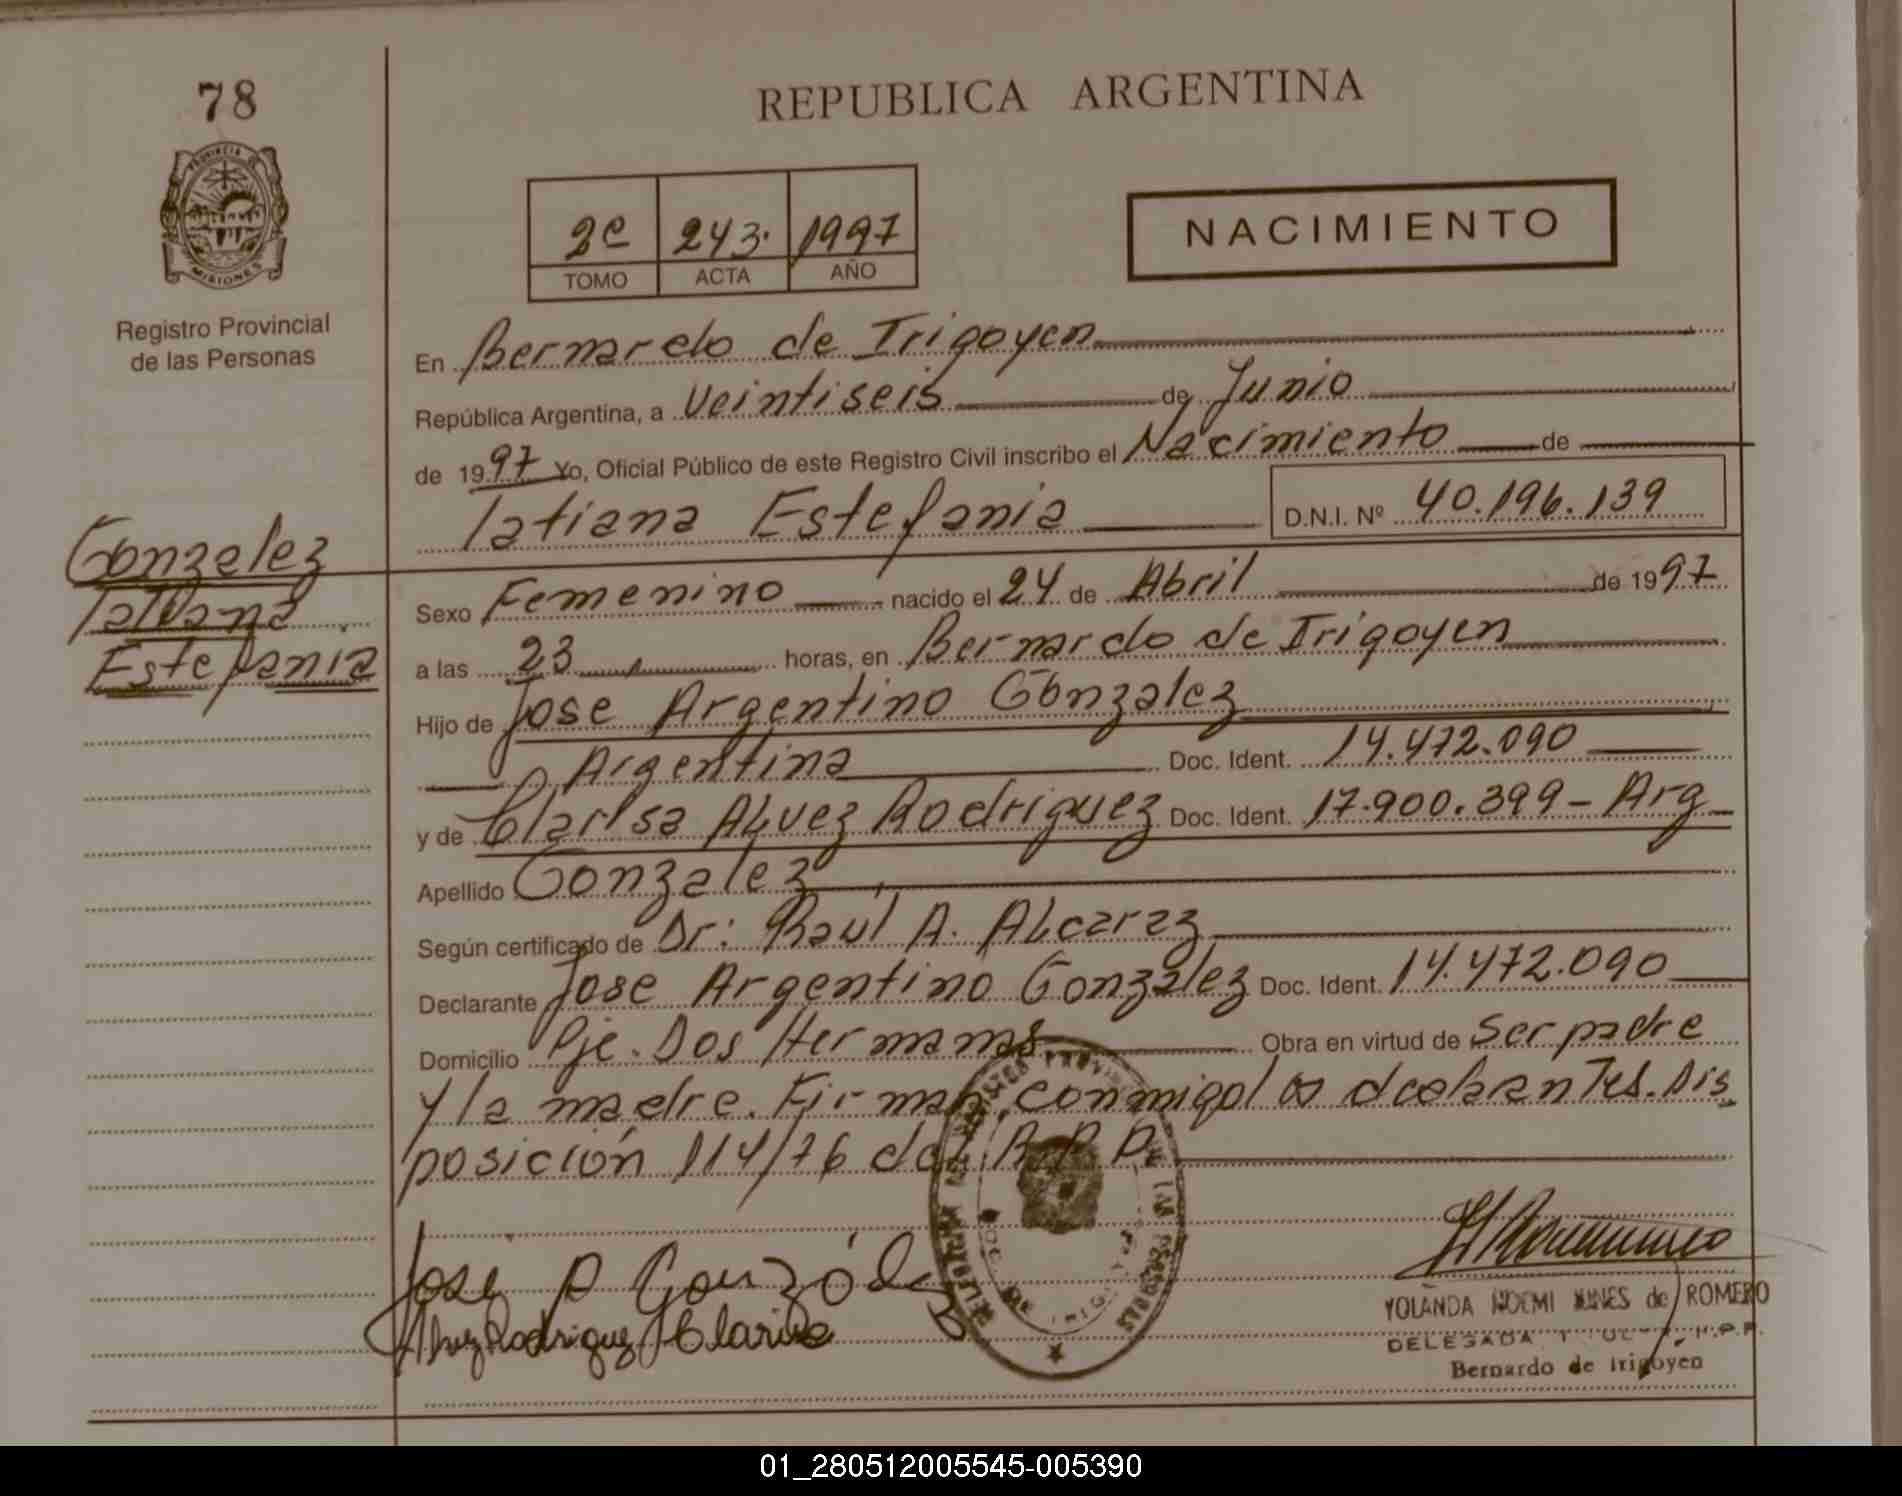 78
REPUBLICA ARGENTINA
PROVINCIA DE
MISIONES
2º 243. 1997
TOMO ACTA AÑO
NACIMIENTO
Registro Provincial
de las Personas
En Bernardo de Irigoyen
República Argentina, a Veintiseis de Junio
de 1997 Yo, Oficial Público de este Registro Civil inscribo el Nacimiento de
Tatiana Estefania D.N.I. Nº 40.196.139
Gonzalez
Tatiana
Estefania
Sexo Femenino nacido el 24 de Abril de 1997
a las 23 horas, en Bernardo de Irigoyen
Hijo de Jose Argentino Gonzalez
Argentina Doc. Ident. 14.472.090
y de Clarisa Alvez Rodriguez Doc. Ident. 17.900.399 - Arg
Apellido Gonzalez
Según certificado de Dr: Raúl A. Alcaraz
Declarante Jose Argentino Gonzalez Doc. Ident. 14.472.090
Domicilio Pje. Dos Hermanas Obra en virtud de Ser padre
y la madre. Firman, conmigo los declarantes. Dis
posición 114/76 del R.P.P.
Jose A González
Alvez Rodriguez Clarisa
YOLANDA NOEMI NUNES de ROMERO
DELEGADA R.P.P.
Bernardo de Irigoyen
01_280512005545-005390